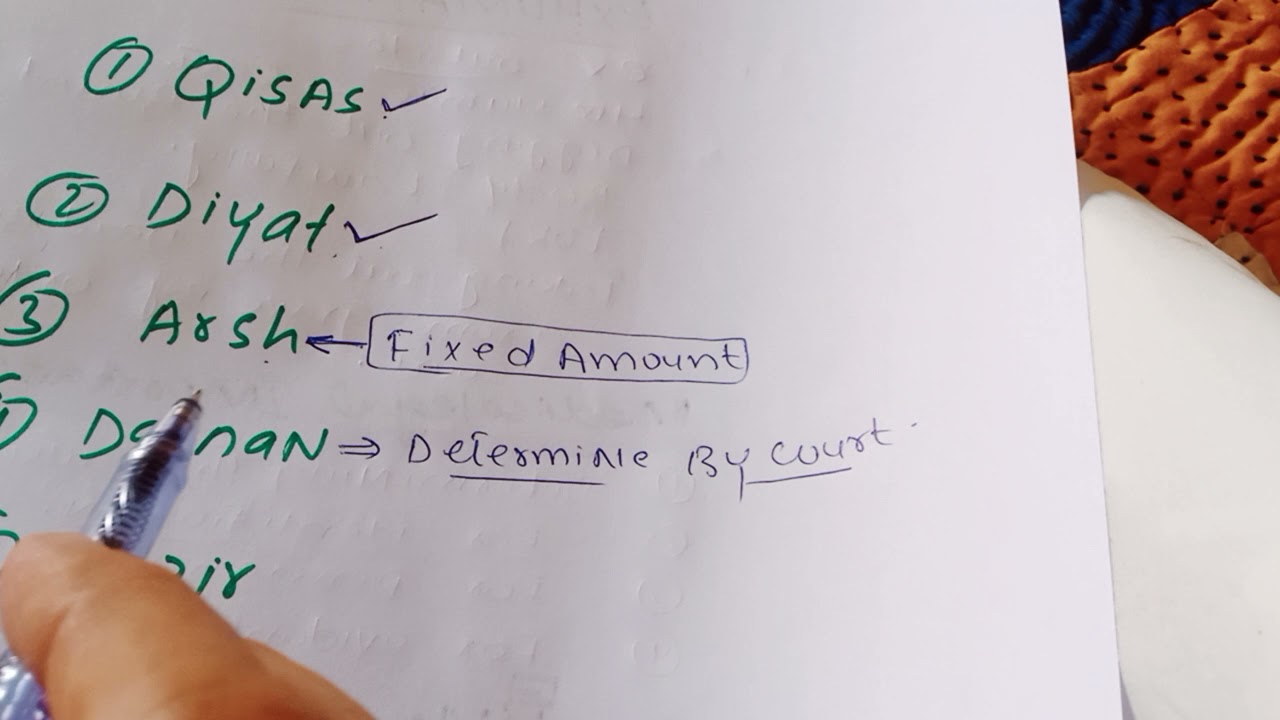 ① Qisas
② Diyat
③ Arsh ← Fixed Amount
⇒ Determine By Court